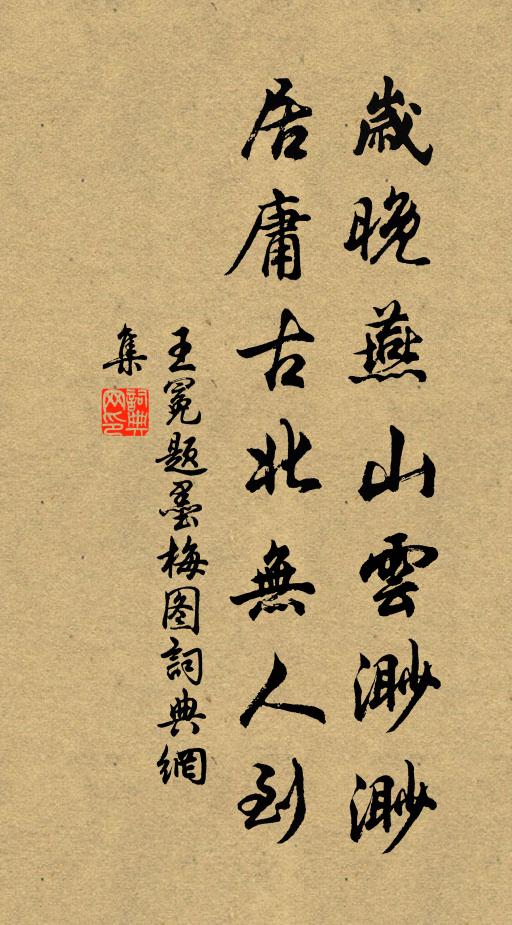 歲晚燕山雲渺渺
居庸古北無人到
王冕题墨梅图詞典網
集
詞典
网印